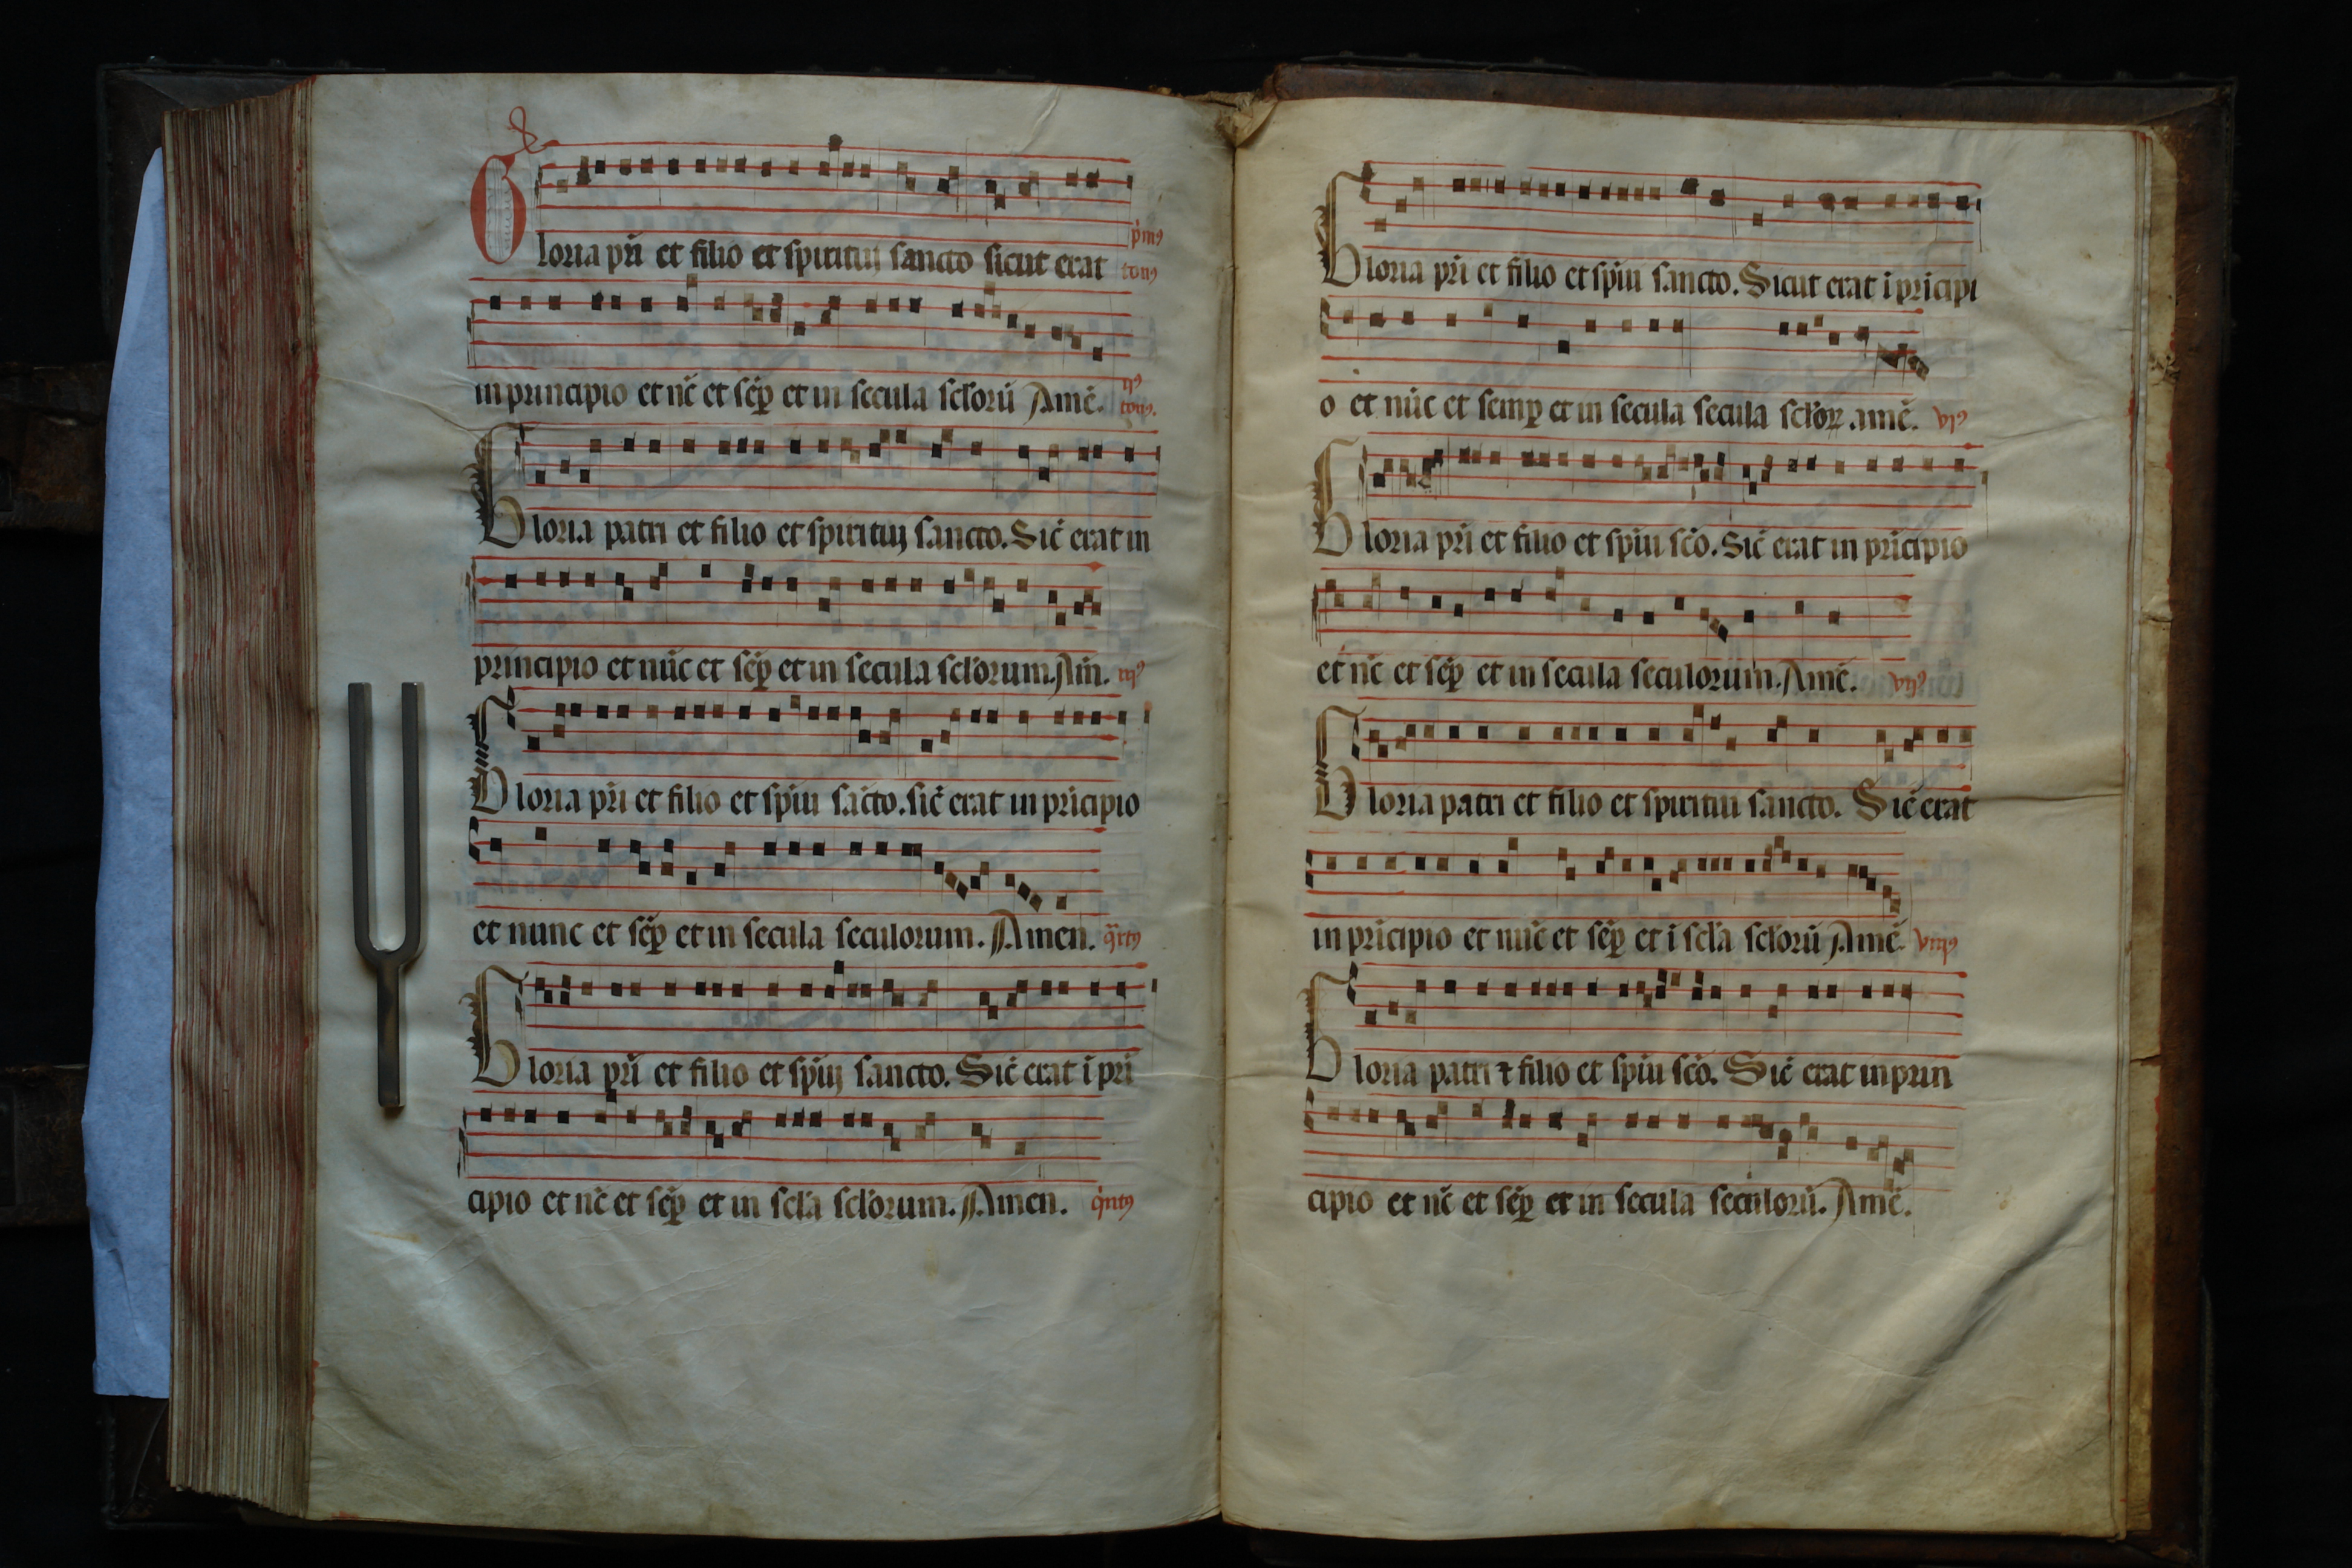 Gloria pri et filio et spirituj sancto sicut erat pm9 ton9
in principio et nc̄ et sēp et in secula sclorū Amē. ij9 ton9.
Gloria patri et filio et spirituj sancto. Sic̄ erat in
principio et nūc et sēp et in secula sclorum. Am̄. iij9
Gloria pri et filio et spiu sācto. sic̄ erat in pricipio
et nunc et sēp et in secula seculorum. Amen. qrt9
Gloria pri et filio et spiuj sancto. Sic̄ erat ī pri
cipio et nc̄ et sēp et in scla sclorum. Amen. qnt9
Gloria pri et filio et spiu sancto. Sicut erat i pricipi
o et nūc et semp et in secula secula sclorꝝ. amē. vj9
Gloria pri et filio et spiu sco. Sic̄ erat in pricipio
et nc̄ et sēp et in secula seculorum. Amē. vij9
Gloria patri et filio et spiritui sancto. Sic̄ erat
in pricipio et nūc et sēp et i scla sclorū Amē. viij9
Gloria patri ⁊ filio et spiu sco. Sic̄ erat in prin
cipio et nc̄ et sēp et in secula seculorū. Amē.